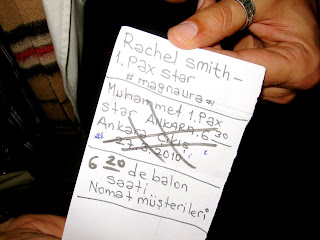 Rachel smith-
1. Pax star
# magnaura #
Muhammet 1. Pax
star ANKARA. 6 30
Ankara Çıkış
# 27.8.2010
6 20 de balon
saati
Nomat müşterileri